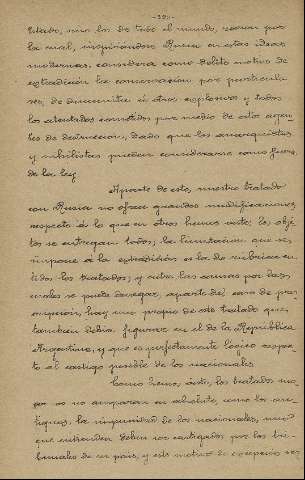 Estado, sino los de todo el mundo, razon por
la cual, inspirándose Rusia en estas ideas
modernas, considera como delito motivo de
extradición la conservacion por particula-
res, de dinamita ú otros explosivos y todos
los atentados cometidos por medio de estos agen-
tes de destruccion, dado que los anarquistas
y nihilistas pueden considerarse como fuera
de la ley
Aparte de esto, nuestro tratado
con Rusia no ofrece grandes modificaciones
respecto á lo que en otros hemos visto; los obje-
tos se entregan todos; la limitacion que se
impone á la extradición es la de
los tratados; y entre las causas por las
cuales se puede denegar, aparte del caso de pres-
cripcion, hay una propia de este tratado que
tambien debia figurar en el de la República
Argentina, y que es perfectamente lógico respec-
to al castigo posible de los nacionales
Como hemos visto, los tratados
no amparan en absoluto, como los an-
tiguos, la impunidad de los nacionales, sino
que entienden deben ser castigados por los tri-
bunales de su país, y este motivo de excepcion